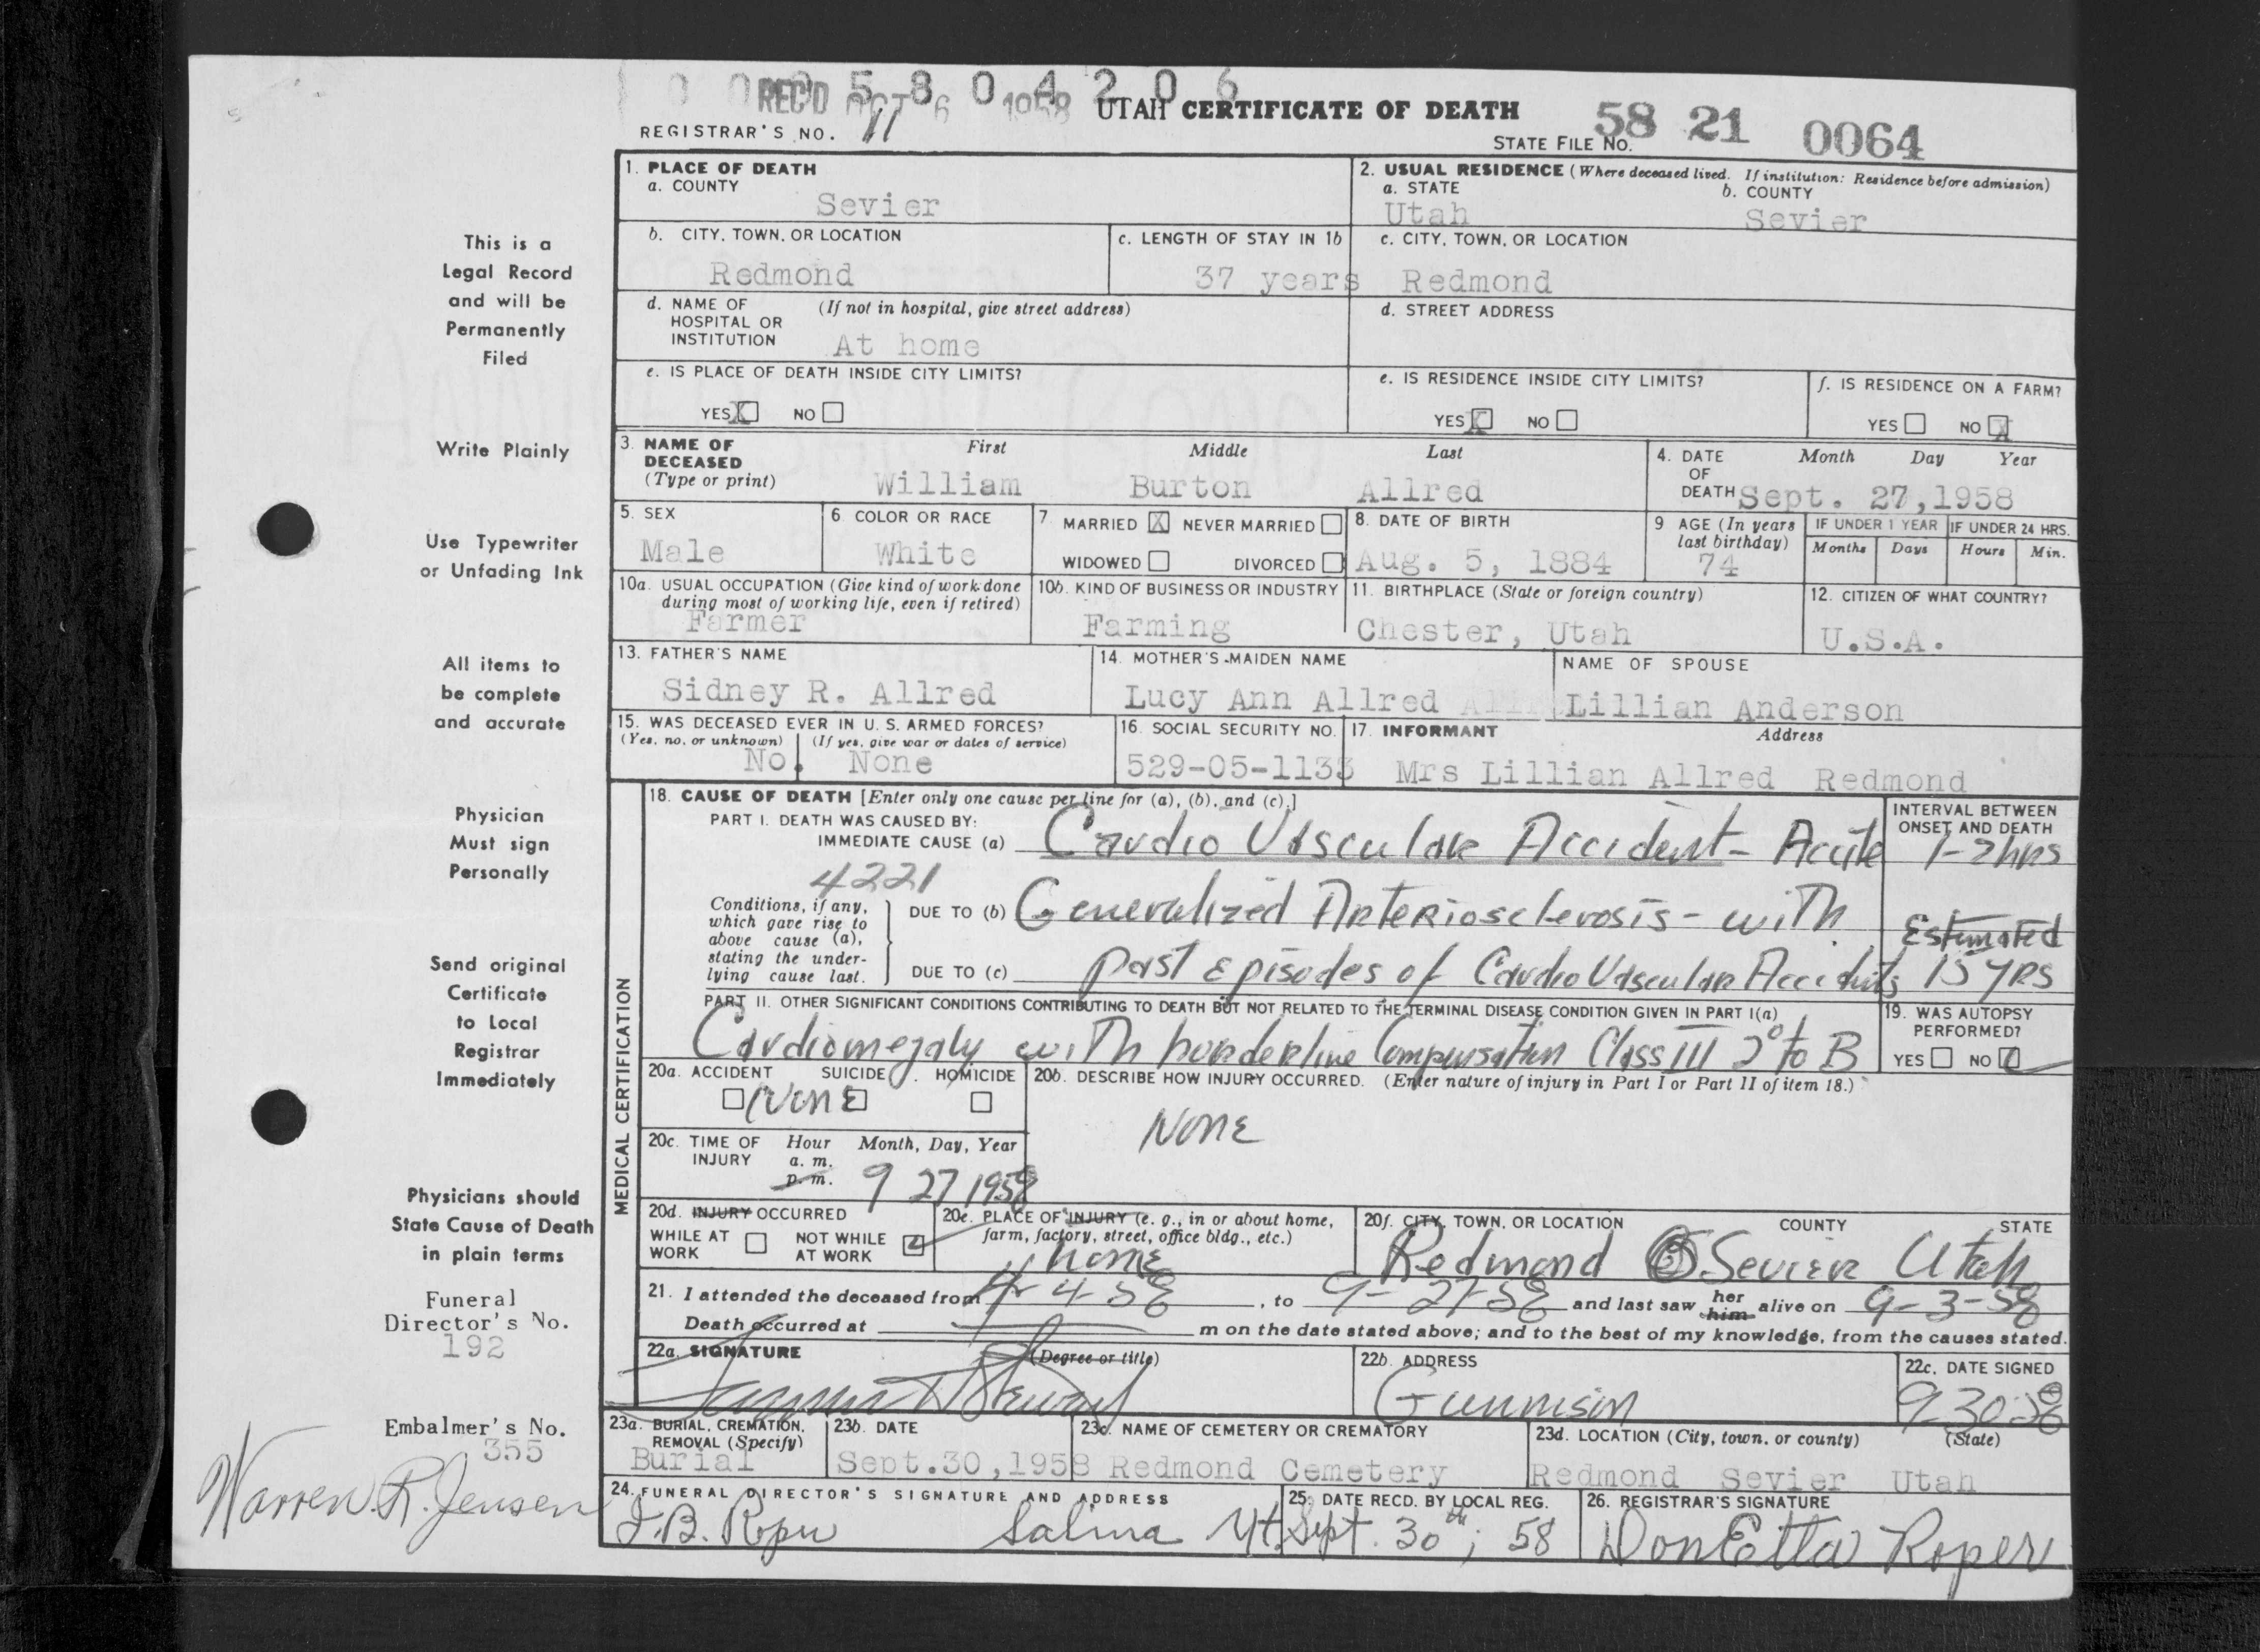 0 0 0 5 8 0 4 2 0 6
REC'D OCT 6 1958 UTAH CERTIFICATE OF DEATH
REGISTRAR'S NO. 11
STATE FILE NO. 58 21 0064
This is a
Legal Record
and will be
Permanently
Filed
Write Plainly
Use Typewriter
or Unfading Ink
All items to
be complete
and accurate
Physician
Must sign
Personally
Send original
Certificate
to Local
Registrar
Immediately
Physicians should
State Cause of Death
in plain terms
Funeral
Director's No.
192
Embalmer's No.
355
Warren R. Jensen
1. PLACE OF DEATH
a. COUNTY
Sevier
2. USUAL RESIDENCE (Where deceased lived. If institution: Residence before admission)
a. STATE b. COUNTY
Utah Sevier
b. CITY, TOWN, OR LOCATION
Redmond
c. LENGTH OF STAY IN 1b
37 years
c. CITY, TOWN, OR LOCATION
Redmond
d. NAME OF (If not in hospital, give street address)
HOSPITAL OR
INSTITUTION At home
d. STREET ADDRESS
e. IS PLACE OF DEATH INSIDE CITY LIMITS?
YES X NO
e. IS RESIDENCE INSIDE CITY LIMITS?
YES X NO
f. IS RESIDENCE ON A FARM?
YES NO X
3. NAME OF First Middle Last
DECEASED
(Type or print) William Burton Allred
4. DATE Month Day Year
OF
DEATH Sept. 27,1958
5. SEX
Male
6. COLOR OR RACE
White
7. MARRIED X NEVER MARRIED
WIDOWED DIVORCED
8. DATE OF BIRTH
Aug. 5, 1884
9 AGE (In years
last birthday)
74
IF UNDER 1 YEAR IF UNDER 24 HRS.
Months Days Hours Min.
10a. USUAL OCCUPATION (Give kind of work done
during most of working life, even if retired)
Farmer
10b. KIND OF BUSINESS OR INDUSTRY
Farming
11. BIRTHPLACE (State or foreign country)
Chester, Utah
12. CITIZEN OF WHAT COUNTRY?
U.S.A.
13. FATHER'S NAME
Sidney R. Allred
14. MOTHER'S MAIDEN NAME
Lucy Ann Allred
NAME OF SPOUSE
Lillian Anderson
15. WAS DECEASED EVER IN U. S. ARMED FORCES?
(Yes, no, or unknown) (If yes, give war or dates of service)
No. None
16. SOCIAL SECURITY NO.
529-05-1133
17. INFORMANT Address
Mrs Lillian Allred Redmond
MEDICAL CERTIFICATION
18. CAUSE OF DEATH [Enter only one cause per line for (a), (b), and (c).]
PART I. DEATH WAS CAUSED BY:
IMMEDIATE CAUSE (a) Cardio Vascular Accident - Acute
INTERVAL BETWEEN
ONSET AND DEATH
1-2 hrs
4221
Conditions, if any,
which gave rise to
above cause (a),
stating the under-
lying cause last.
DUE TO (b) Generalized Arteriosclerosis - with
Estimated
DUE TO (c) past Episodes of Cardio Vascular Accidents 15 yrs
PART II. OTHER SIGNIFICANT CONDITIONS CONTRIBUTING TO DEATH BUT NOT RELATED TO THE TERMINAL DISEASE CONDITION GIVEN IN PART I(a)
Cardiomegaly with borderline Compensation Class III 2° to B
19. WAS AUTOPSY
PERFORMED?
YES NO
20a. ACCIDENT SUICIDE HOMICIDE
None
20b. DESCRIBE HOW INJURY OCCURRED. (Enter nature of injury in Part I or Part II of item 18.)
None
20c. TIME OF Hour Month, Day, Year
INJURY a. m.
p. m. 9 27 1958
20d. INJURY OCCURRED
WHILE AT NOT WHILE
WORK AT WORK
20e. PLACE OF INJURY (e. g., in or about home,
farm, factory, street, office bldg., etc.)
home
20f. CITY, TOWN, OR LOCATION COUNTY STATE
Redmond Sevier Utah
21. I attended the deceased from 4-4-58, to 9-27-58 and last saw her him alive on 9-3-58
Death occurred at m on the date stated above; and to the best of my knowledge, from the causes stated.
22a. SIGNATURE (Degree or title)
Stewart
22b. ADDRESS
Gunnison
22c. DATE SIGNED
9-30-58
23a. BURIAL, CREMATION,
REMOVAL (Specify)
Burial
23b. DATE
Sept.30,1958
23c. NAME OF CEMETERY OR CREMATORY
Redmond Cemetery
23d. LOCATION (City, town, or county) (State)
Redmond Sevier Utah
24. FUNERAL DIRECTOR'S SIGNATURE AND ADDRESS
J.B. Roper Salina Ut.
25. DATE RECD. BY LOCAL REG.
Sept. 30th, 58
26. REGISTRAR'S SIGNATURE
DonEtta Roper